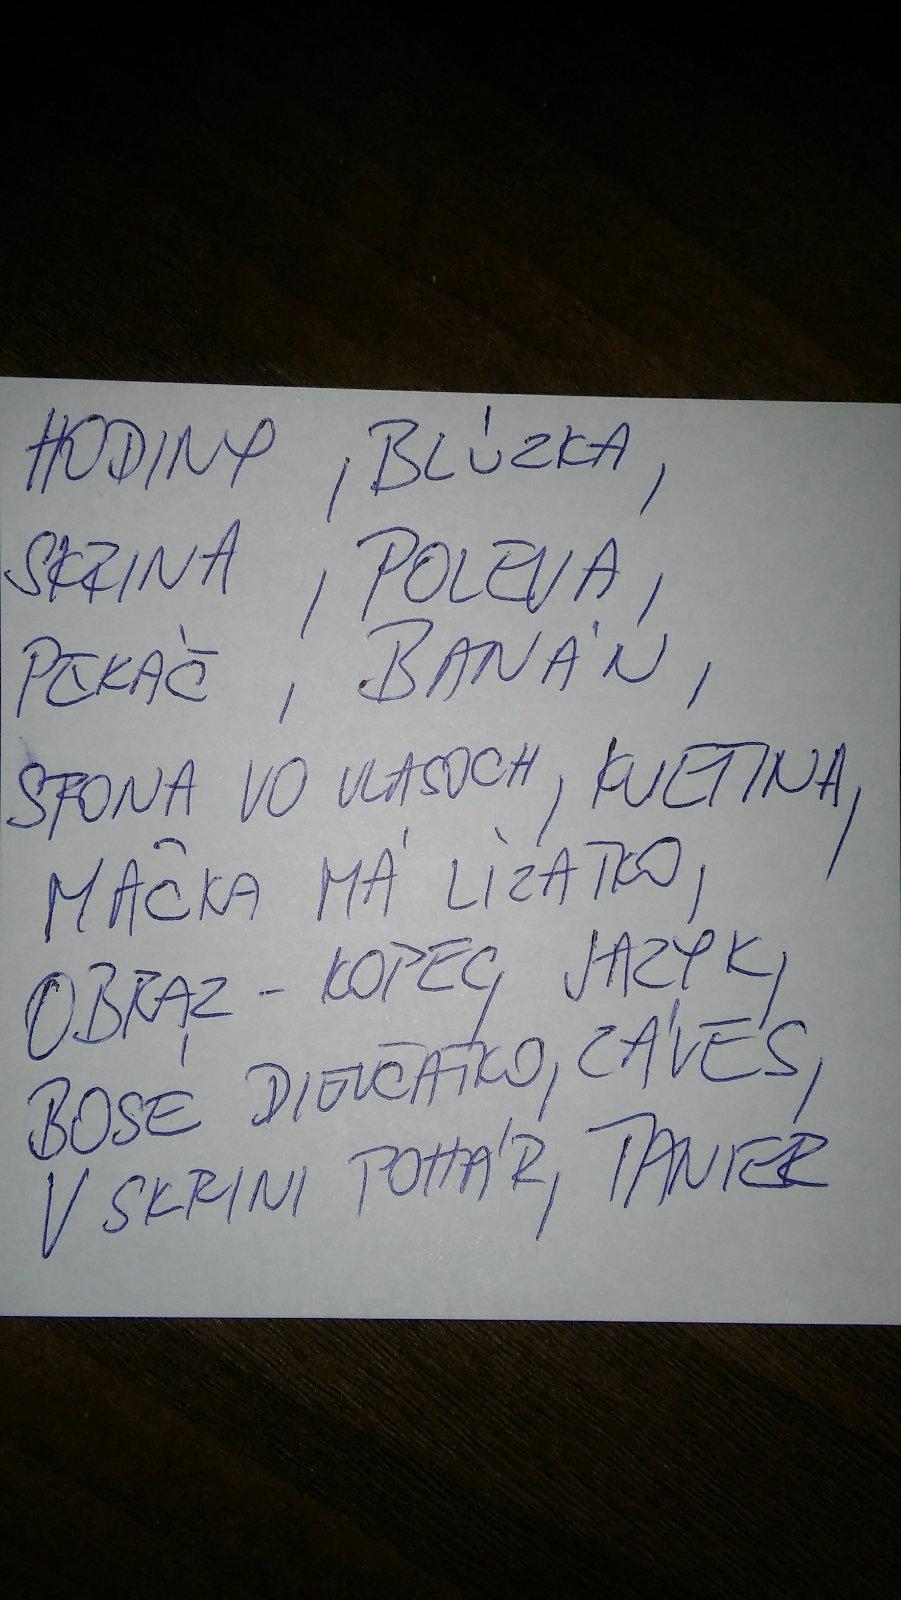 HODINY, BLÚZKA,
SKRINA, POLEVA,
PEKAČ, BANÁN,
SPONA VO VLASOCH, KVETINA,
MAČKA MÁ LÍZATKO,
OBRAZ - KOPEC, JAZYK,
BOSÉ DIEVČATKO, ZÁVES,
V SKRINI POHÁR, TANIER